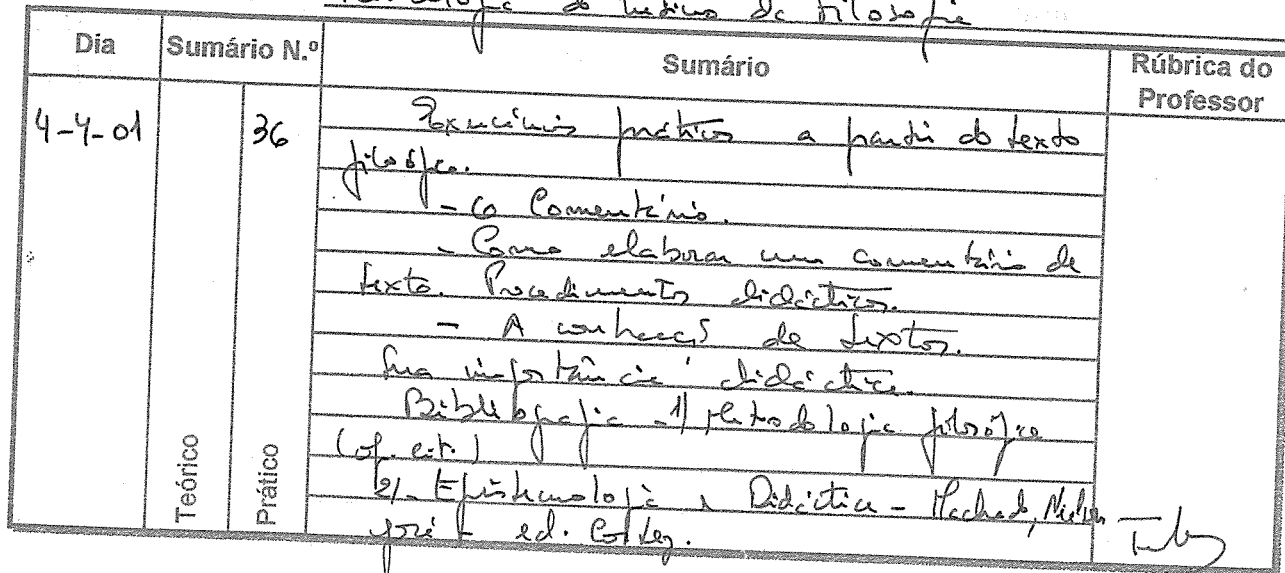 Metodologia do Ensino da Filosofia
Dia Sumário N.º Sumário Rúbrica do Professor
4-4-01 36 Exercícios práticos a partir do texto
filosófico.
- O Comentário.
- Como elaborar um comentário de
texto. Procedimentos didácticos.
- A de textos.
Sua importância didáctica.
Bibliografia - 1) Metodologia filosófica
(op. cit.)
2) - Epistemologia e Didáctica - Machado, Nilson
José - ed. Cortez.
Teórico
Prático